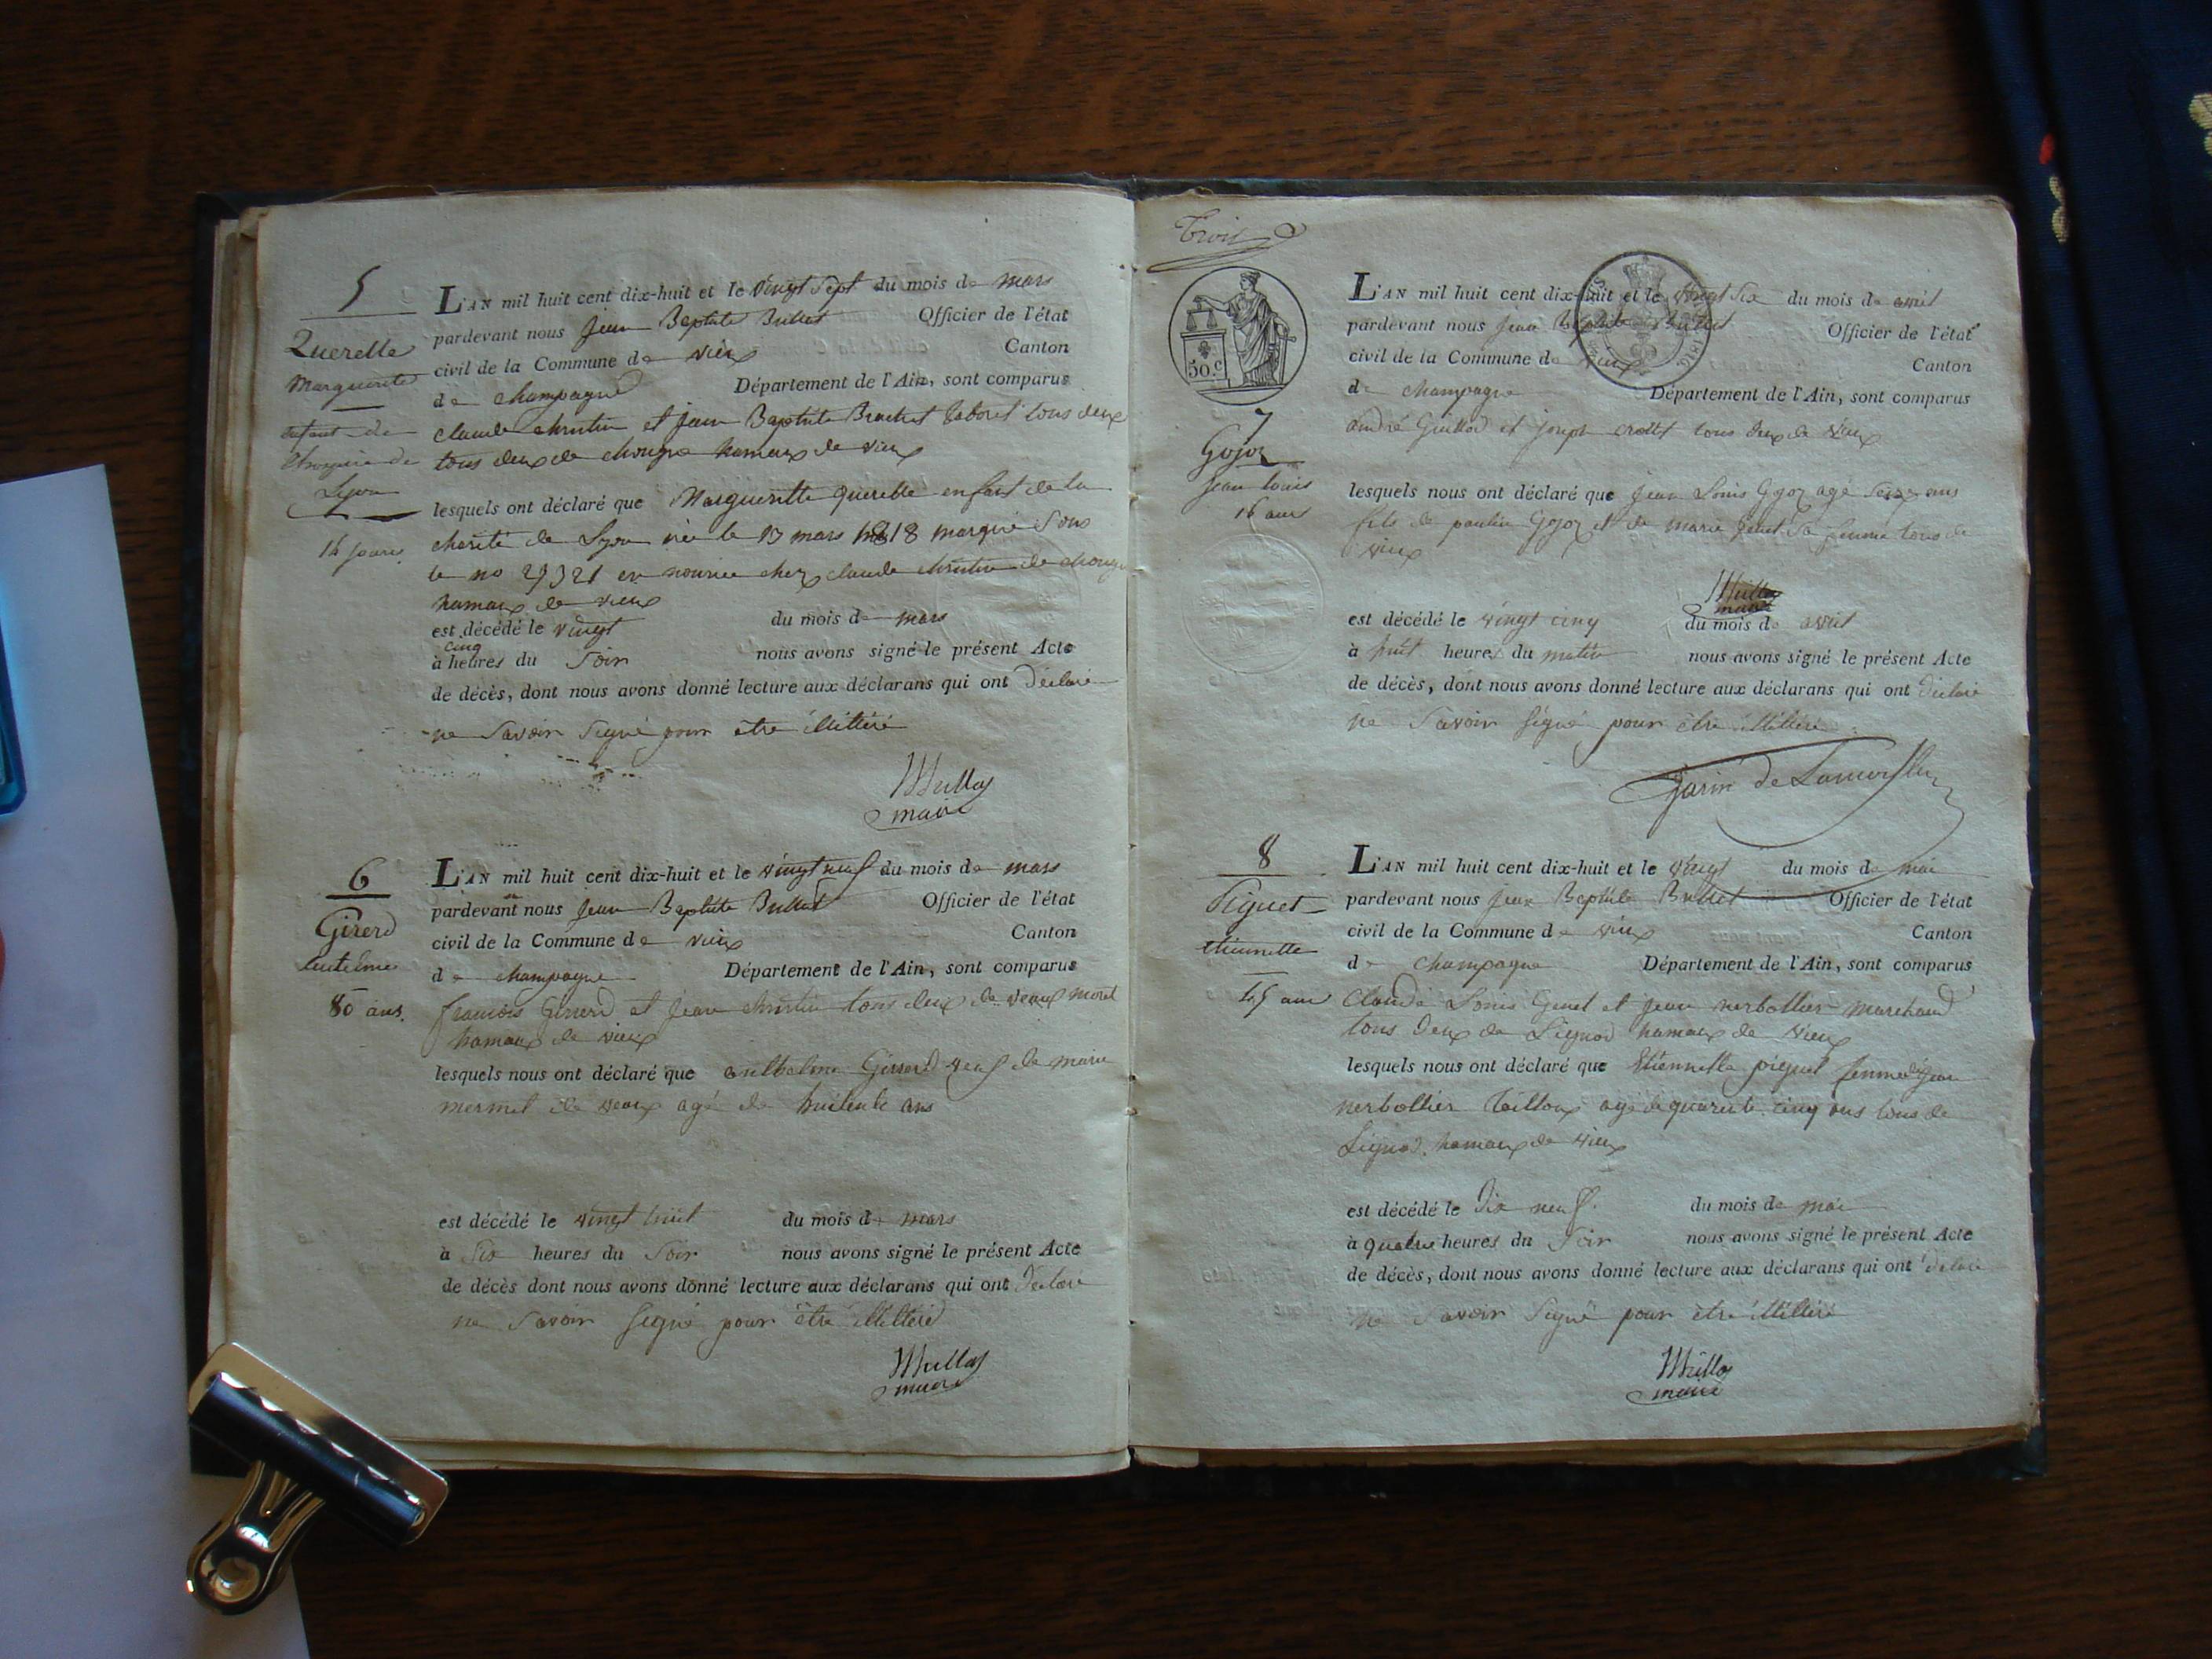 5
Querelle
Marguerite
enfant de
Lyon
14 jours
L'AN mil huit cent dix-huit et le vingt sept du mois de mars
pardevant nous Jean Baptiste Officier de l'état
civil de la Commune de vieux Canton
de champagne Département de l'Ain, sont comparus
claude christin et jean Baptiste Brachet tous deux
tous deux de chongne hamaux de vieux
lesquels ont déclaré que Margueritte querelle enfant de la
charité de Lyon née le 13 mars 1818 marquée sous
le no en nourice chez claude christin de chongne
hamaux de vieux
est décédé le vingt du mois de mars
cinq
à heures du soir nous avons signé le présent Acte
de décès, dont nous avons donné lecture aux déclarans qui ont déclaré
ne savoir signé pour être illitéré
maire
6
Girerd
80 ans
L'AN mil huit cent dix-huit et le vingt neuf du mois de mars
pardevant nous Jean Baptiste Officier de l'état
civil de la Commune de vieux Canton
de champagne Département de l'Ain, sont comparus
francois Girerd et jean christin tous deux de veaux morel
hamaux de vieux
lesquels nous ont déclaré que anthelme Girerd veuf de marie
mermet de veaux agé de huitente ans
est décédé le vingt huit du mois de mars
à six heures du soir nous avons signé le présent Acte
de décès dont nous avons donné lecture aux déclarans qui ont déclaré
ne savoir signé pour être illitéré
maire
Trois
50 c
7
Gojoz
jean louis
16 ans
L'AN mil huit cent dix-huit et le vingt six du mois de avril
pardevant nous jean Baptiste Officier de l'état
civil de la Commune de vieux Canton
de champagne Département de l'Ain, sont comparus
andré Guillod et joseph tous deux de vieux
lesquels nous ont déclaré que jean Louis Gojoz agé seize ans
fils de Gojoz et de marie sa femme tous de
vieux
maire
est décédé le vingt cinq du mois de avril
à huit heures du matin nous avons signé le présent Acte
de décès, dont nous avons donné lecture aux déclarans qui ont déclaré
ne savoir signé pour être illitéré
8
Piguet
etiennette
45 ans
L'AN mil huit cent dix-huit et le vingt du mois de mai
pardevant nous Jean Baptiste Officier de l'état
civil de la Commune de vieux Canton
de champagne Département de l'Ain, sont comparus
Claude Louis Genet et jean nerbollier marchand
tous deux de Lignod hamaux de vieux
lesquels nous ont déclaré que Etiennette piguet femme de jean
nerbollier agé de quarente cinq ans tous de
Lignod hamaux de vieux
est décédé le dix neuf du mois de mai
à quatre heures du soir nous avons signé le présent Acte
de décès, dont nous avons donné lecture aux déclarans qui ont déclaré
ne savoir signé pour être illitéré
maire